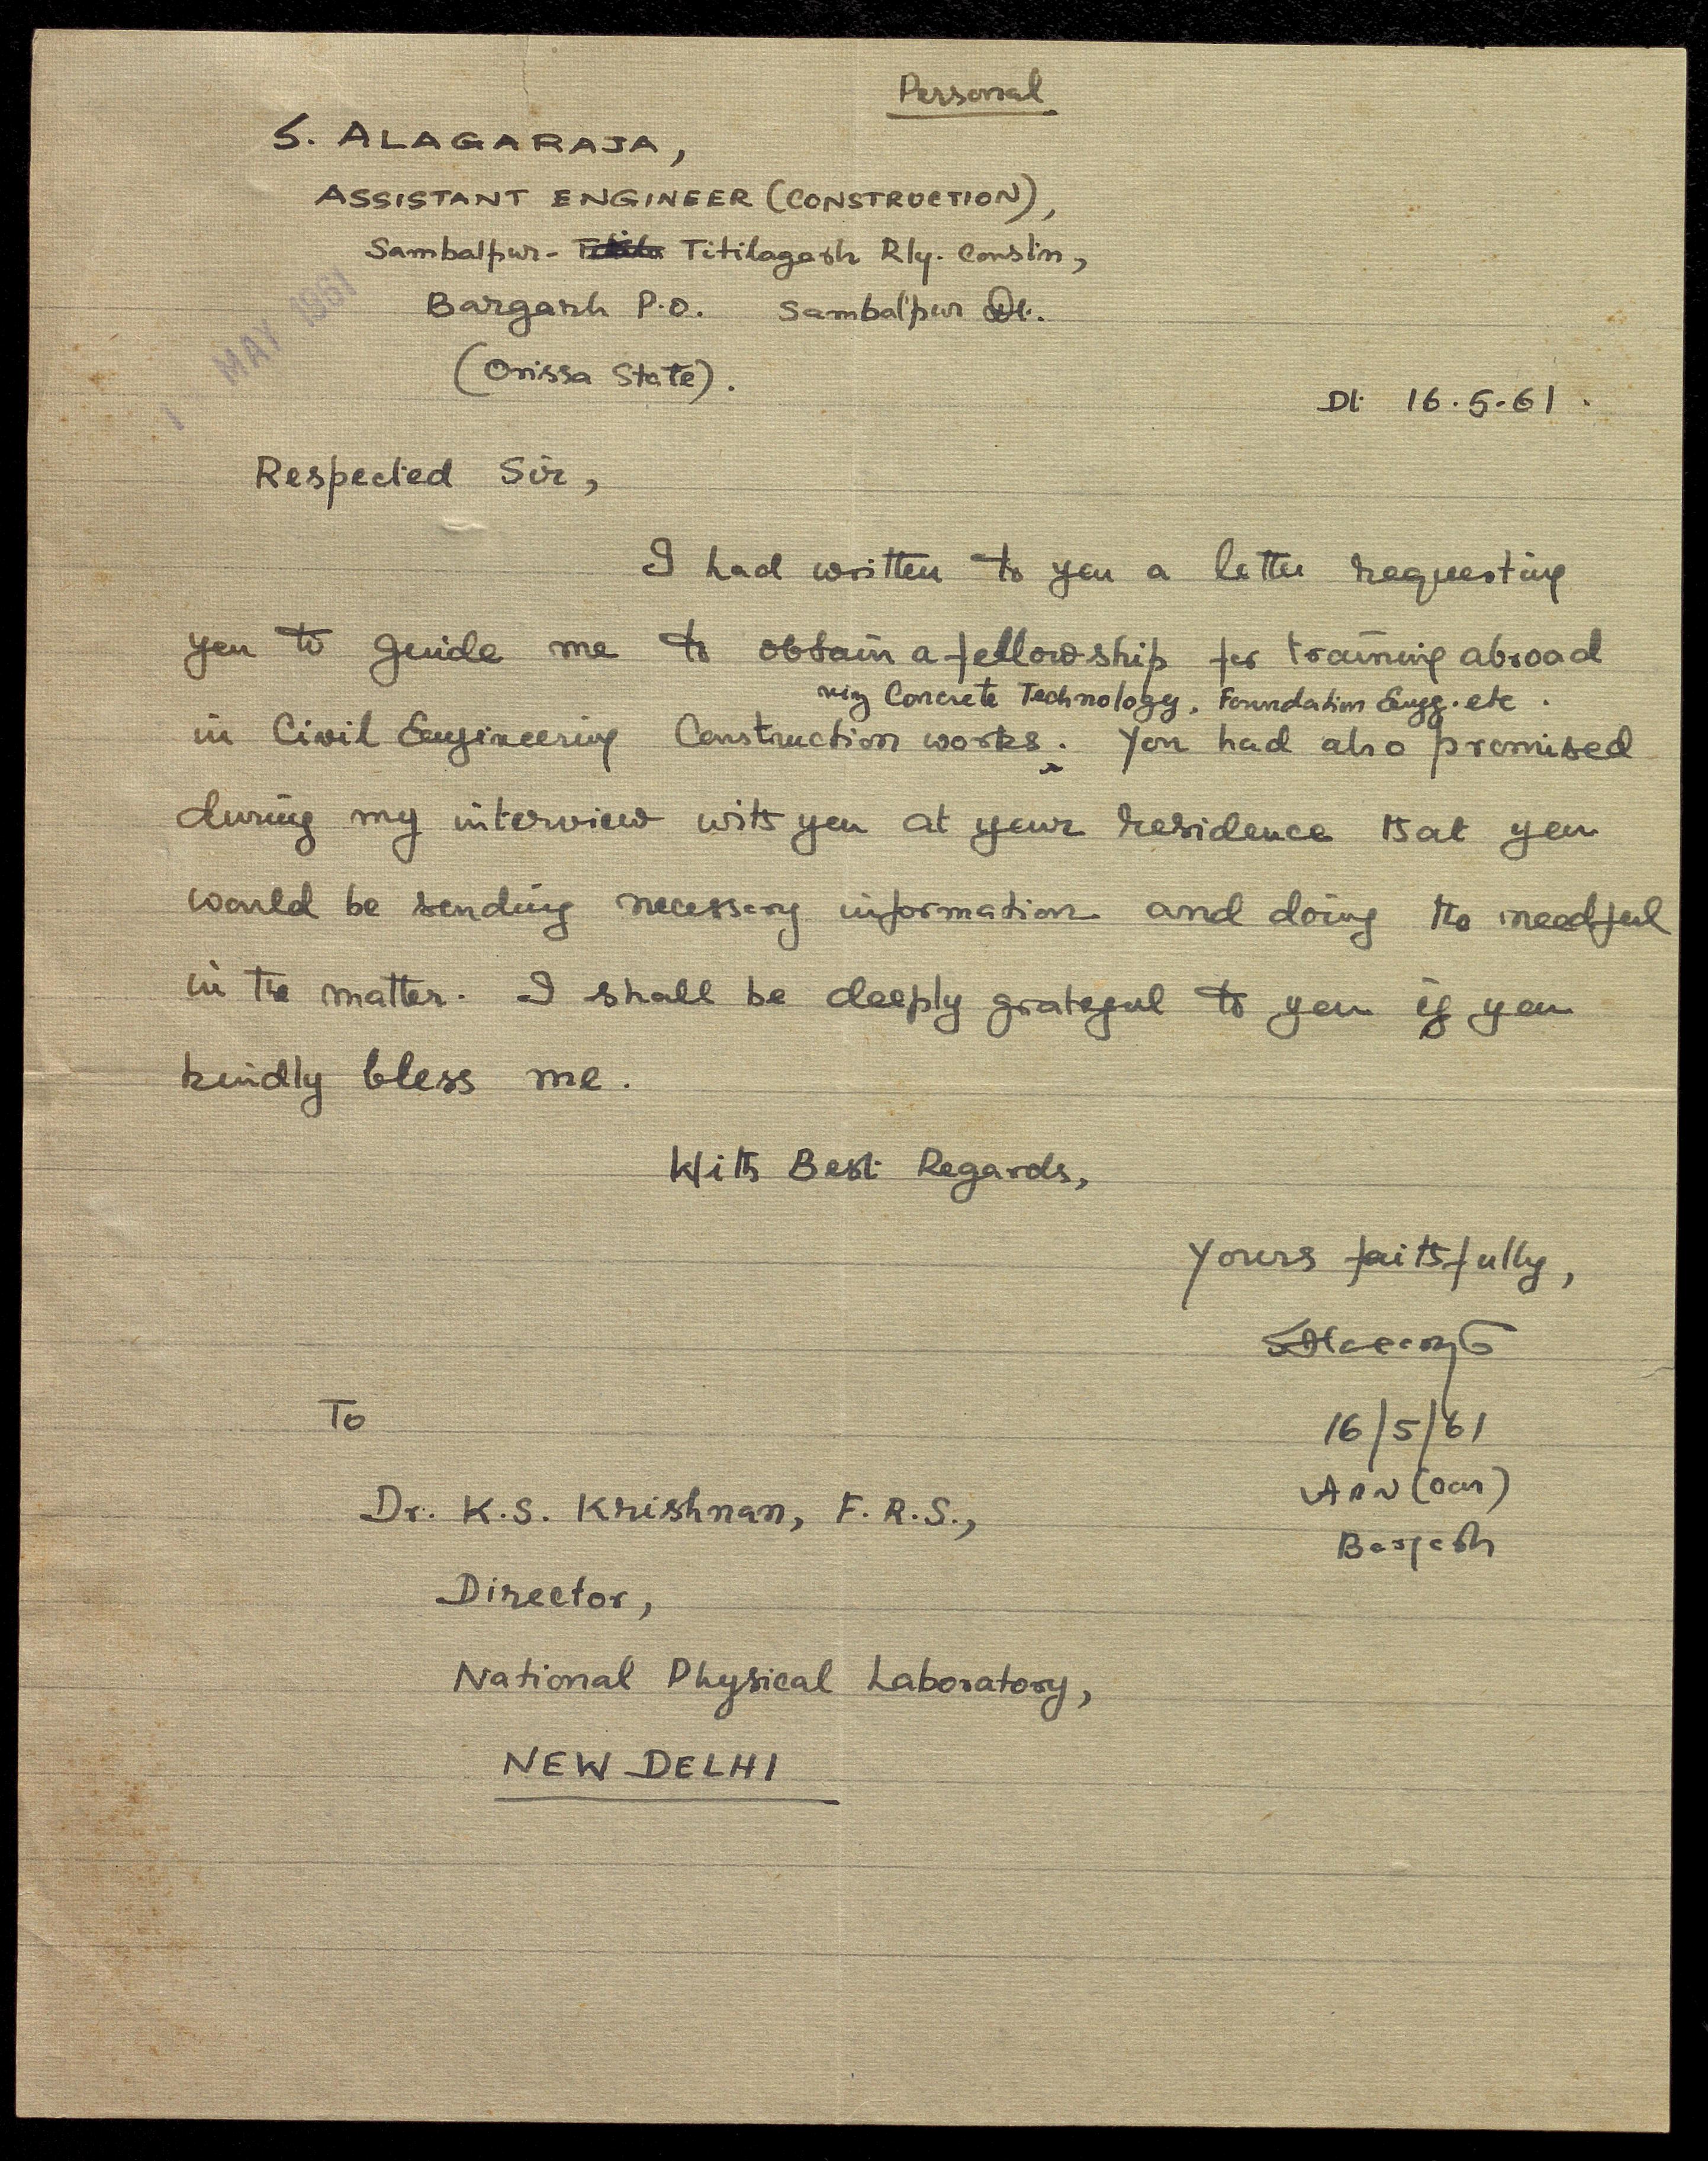 Personal
S. ALAGARAJA,
ASSISTANT ENGINEER (CONSTRUCTION),
Sambalpur- Titilagarh Rly. Constn,
Bargarh P.O. Sambalpur Dt.
(Orissa State).
MAY 1961
Dt 16.5.61.
Respected Sir,
I had written to you a letter requesting
you to guide me to obtain a fellowship for training abroad
viz Concrete Technology, Foundation Engg. etc.
in Civil Engineering Construction works. You had also promised
during my interview with you at your residence that you
would be sending necessary information and doing the needful
in the matter. I shall be deeply grateful to you if you
kindly bless me.
With Best Regards,
Yours faithfully,
16/5/61
Bargarh
To
Dr. K.S. Krishnan, F.R.S.,
Director,
National Physical Laboratory,
NEW DELHI